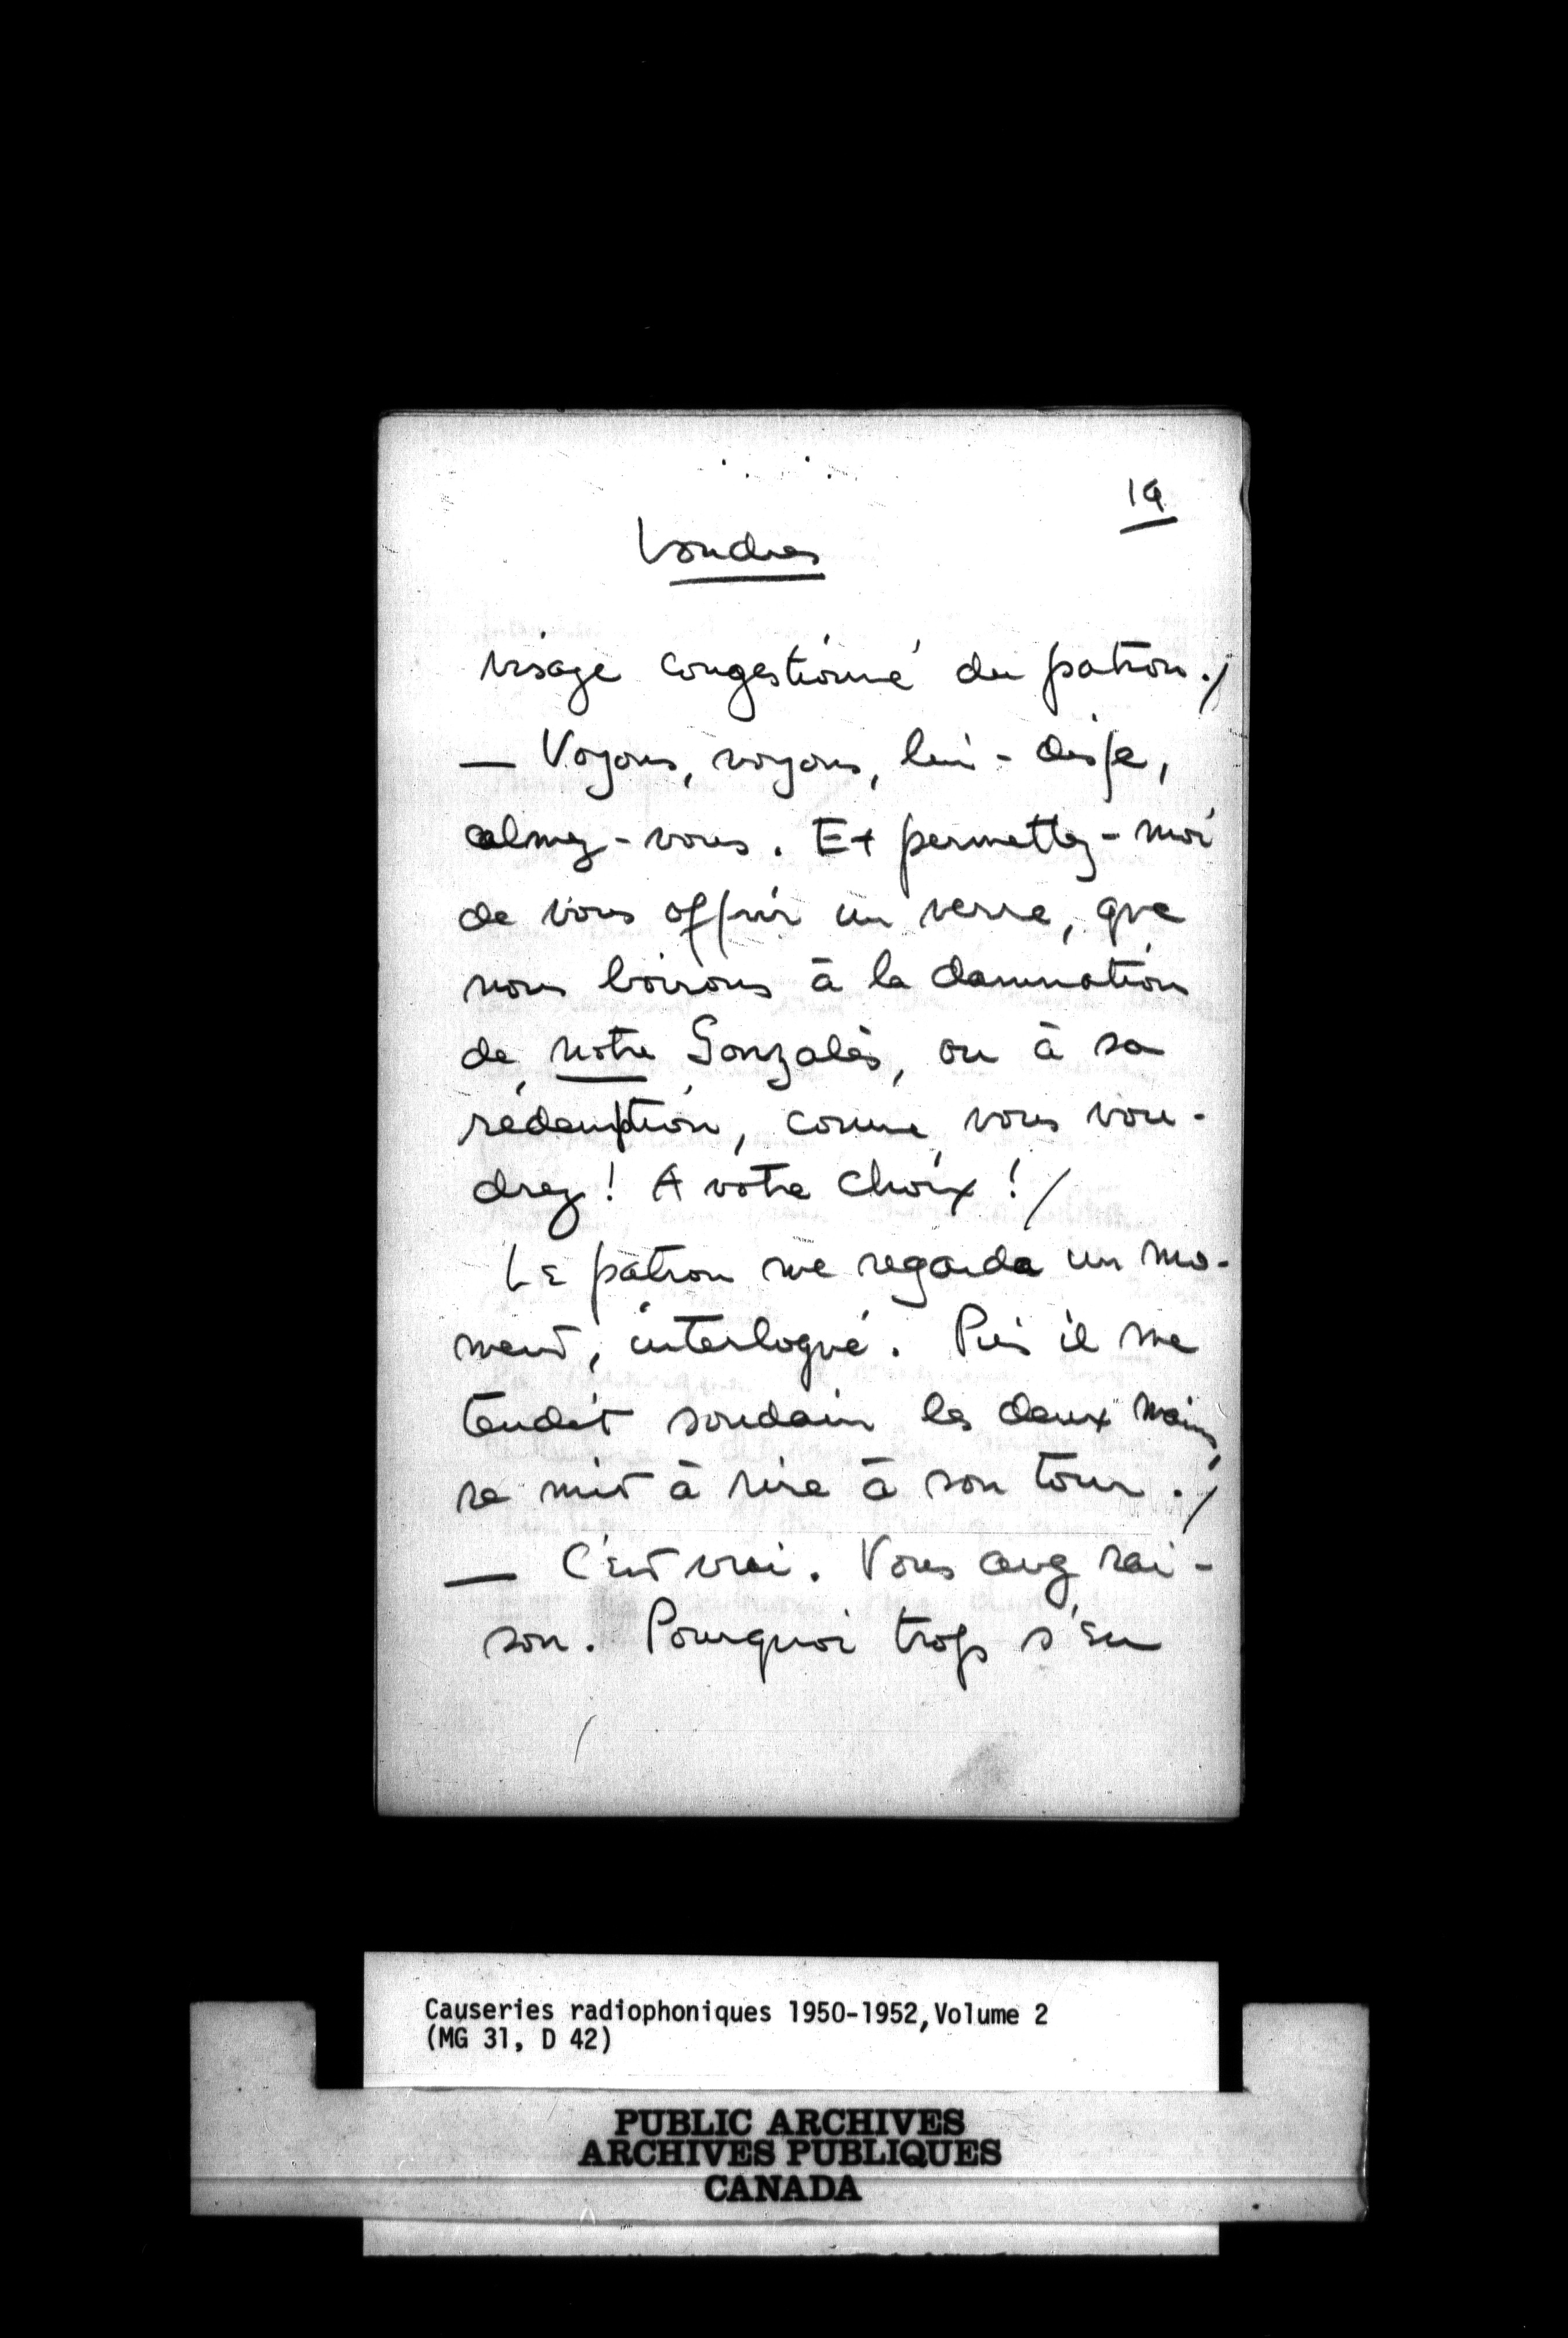 19
Londres
visage congestionné du patron./
— Voyons, voyons, lui-disje,
calmez-vous. Et permettez-moi
de vous offrir un verre, que
nous boirons à la damnation
de notre Gonzalès, ou à sa
rédemption, comme vous vou-
drez! A votre choix!/
Le patron me regarda un mo-
ment, interloqué. Puis il me
tendit soudain les deux mains,
se mit à rire à son tour./
— C'est vrai. Vous avez rai-
son. Pourquoi trop s'en
Causeries radiophoniques 1950-1952, Volume 2
(MG 31, D 42)
PUBLIC ARCHIVES
ARCHIVES PUBLIQUES
CANADA